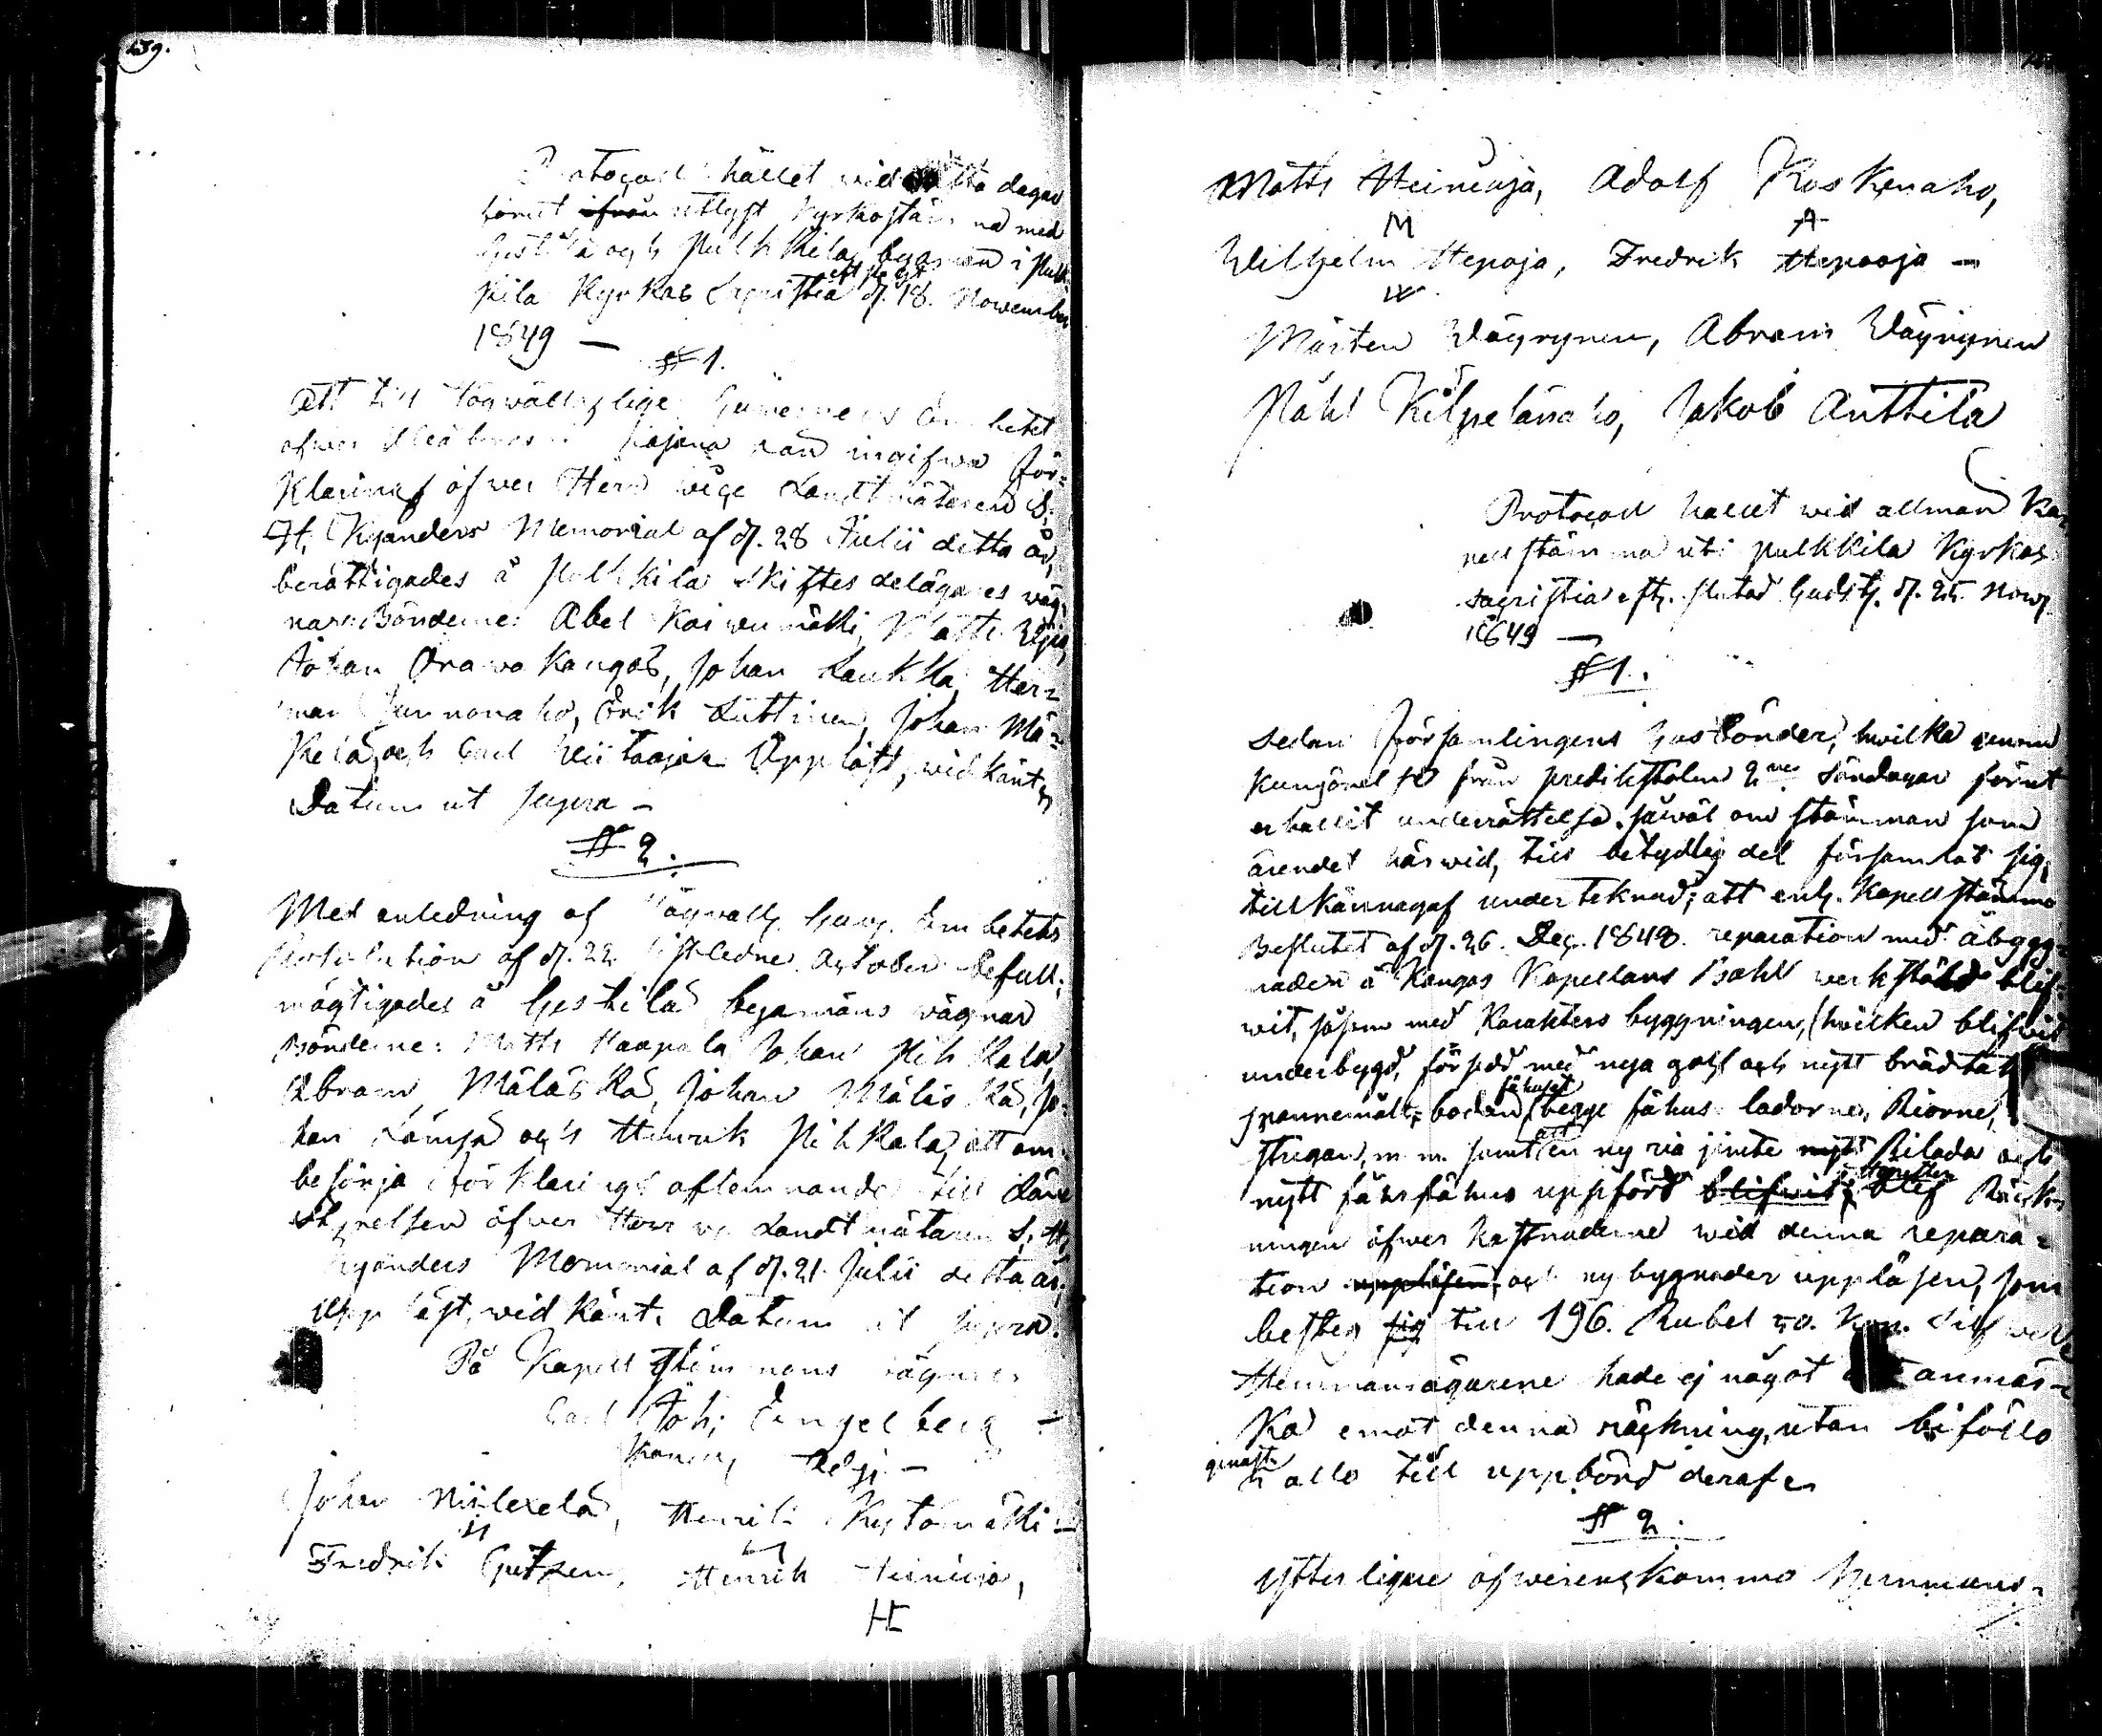 139.
Protocoll hållet wid åtta dagar
förut ifrån utlyst Kyrkostämma med
Gestilä och Pulkkila byamän i Pulk-
kila Kyrkas Sacristia d. 18. November
1849 —
§ 1.
Att till Högwällofliga Guvernörs Embetet
öfwer Uleåborgs Kajana Län ingifwa för-
klaring öfwer Herr vice Landtmätaren S.
H. Kyanders Memorial af d. 28 Julii detta år,
berättigades å Pulkkila Skiftes delägares väg-
nar Bönderne: Abel Kaiwumäki, Matts
Johan Orawakangas, Johan Laukka, Her-
man Junnonaho, Erik Luttinen, Johan Mä-
kelä, och Carl Uppläst, widkänt
Datum ut supra —
§ 2.
Med anledning af Högwällg. Guv. Embetets
Resolution af d. 22 sistledne October befull-
mägtigades å Gestilä byamäns vägnar
Bönderne: Matts Haapala Johan Pihkala,
Abram Mäläskä, Johan Mäläskä, Jo-
han Lämsä och Henrik Pihkala, att om-
besörja Förklarings aflemnande till Läns
styrelsen öfwer Herr v. Landtmätaren S. H.
Kyanders Memorial af d. 21. Julii detta år;
Uppläst, widkänt. Datum ut supra.
På Kapell Stämmans vägnar
Carl Joh. Engelberg —
Adj. —
Johan Niilexelä, Henrik Kytömäki —
Fredrik Henrik Heinioja,
H
Matts Heinioja, Adolf Koskenaho,
M A
Wilhelm Hepoja, Fredrik Hepooja —
W
Mårten Wäyrynen, Abram Wäyrynen
Påhl Kilpelänaho, Jakob Anttila
Protocoll hållet wid allmän Ka-
pellstämma uti Pulkkila Kyrkas
Sacristia eft. slutad Gudstj. d. 25. Nov.
1849 —
§ 1.
Sedan Församlingens Husbönder, hwilka genom
kungörelse från predikstolen 2ne Söndagar förut
erhållit underrättelse, såwäl om stämman som
ärendet härwid, till betydlig del församlat sig,
tillkännagaf undertecknad; att enl. Kapellstämmo
Beslutet af d. 26. Dec. 1848. reparation med åbygg-
naden å Kangas Kapellans Bohl werkstäld blif-
wit, såsom med Karakters byggningen, (hwilken blifwit
underbygd, försedd med nya golf och nytt brädtak
spannemåls-boden, fähuset begge fähus ladorne, Riorne,
stugan, m. m. samt att en ny ria jemte nytt Rilada och
nytt fårfähus uppförd blifwit; Hwarefter blef Räk-
ningen öfwer kostnaderne wid denna repara-
tion uppläsen, och ny bygnader uppläsen, som
besteg sig till 196. Rubel 50. Kop. Silfwer
Hemmansägarene hade ej något att anmär-
ka emot denna räckning, utan biföllo
genast alla till uppbörd deraf.
§ 2.
Ytterligare öfwerenskommo Hemmans-